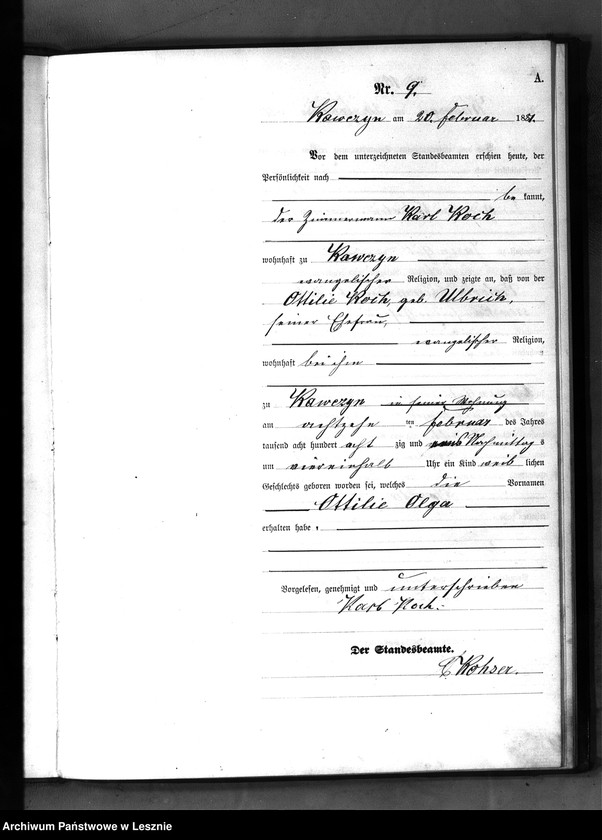 A.
Nr. 9.
Kawczyn am 20. Februar 1881.
Vor dem unterzeichneten Standesbeamten erschien heute, der
Persönlichkeit nach
be kannt,
der Zimmermann Karl Koch
wohnhaft zu Kawczyn
evangelischer Religion, und zeigte an, daß von der
Ottilie Koch, geb. Ulbrich,
seiner Ehefrau,
evangelischer Religion,
wohnhaft bei ihm
zu Kawczyn in seiner Wohnung
am achtzehn ten Februar des Jahres
tausend acht hundert acht zig und eins Nachmittag s
um viereinhalb Uhr ein Kind weib lichen
Geschlechts geboren worden sei, welches die Vornamen
Ottilie Olga
erhalten habe.
Vorgelesen, genehmigt und unterschrieben
Karl Koch.
Der Standesbeamte.
Archiwum Państwowe w Lesznie